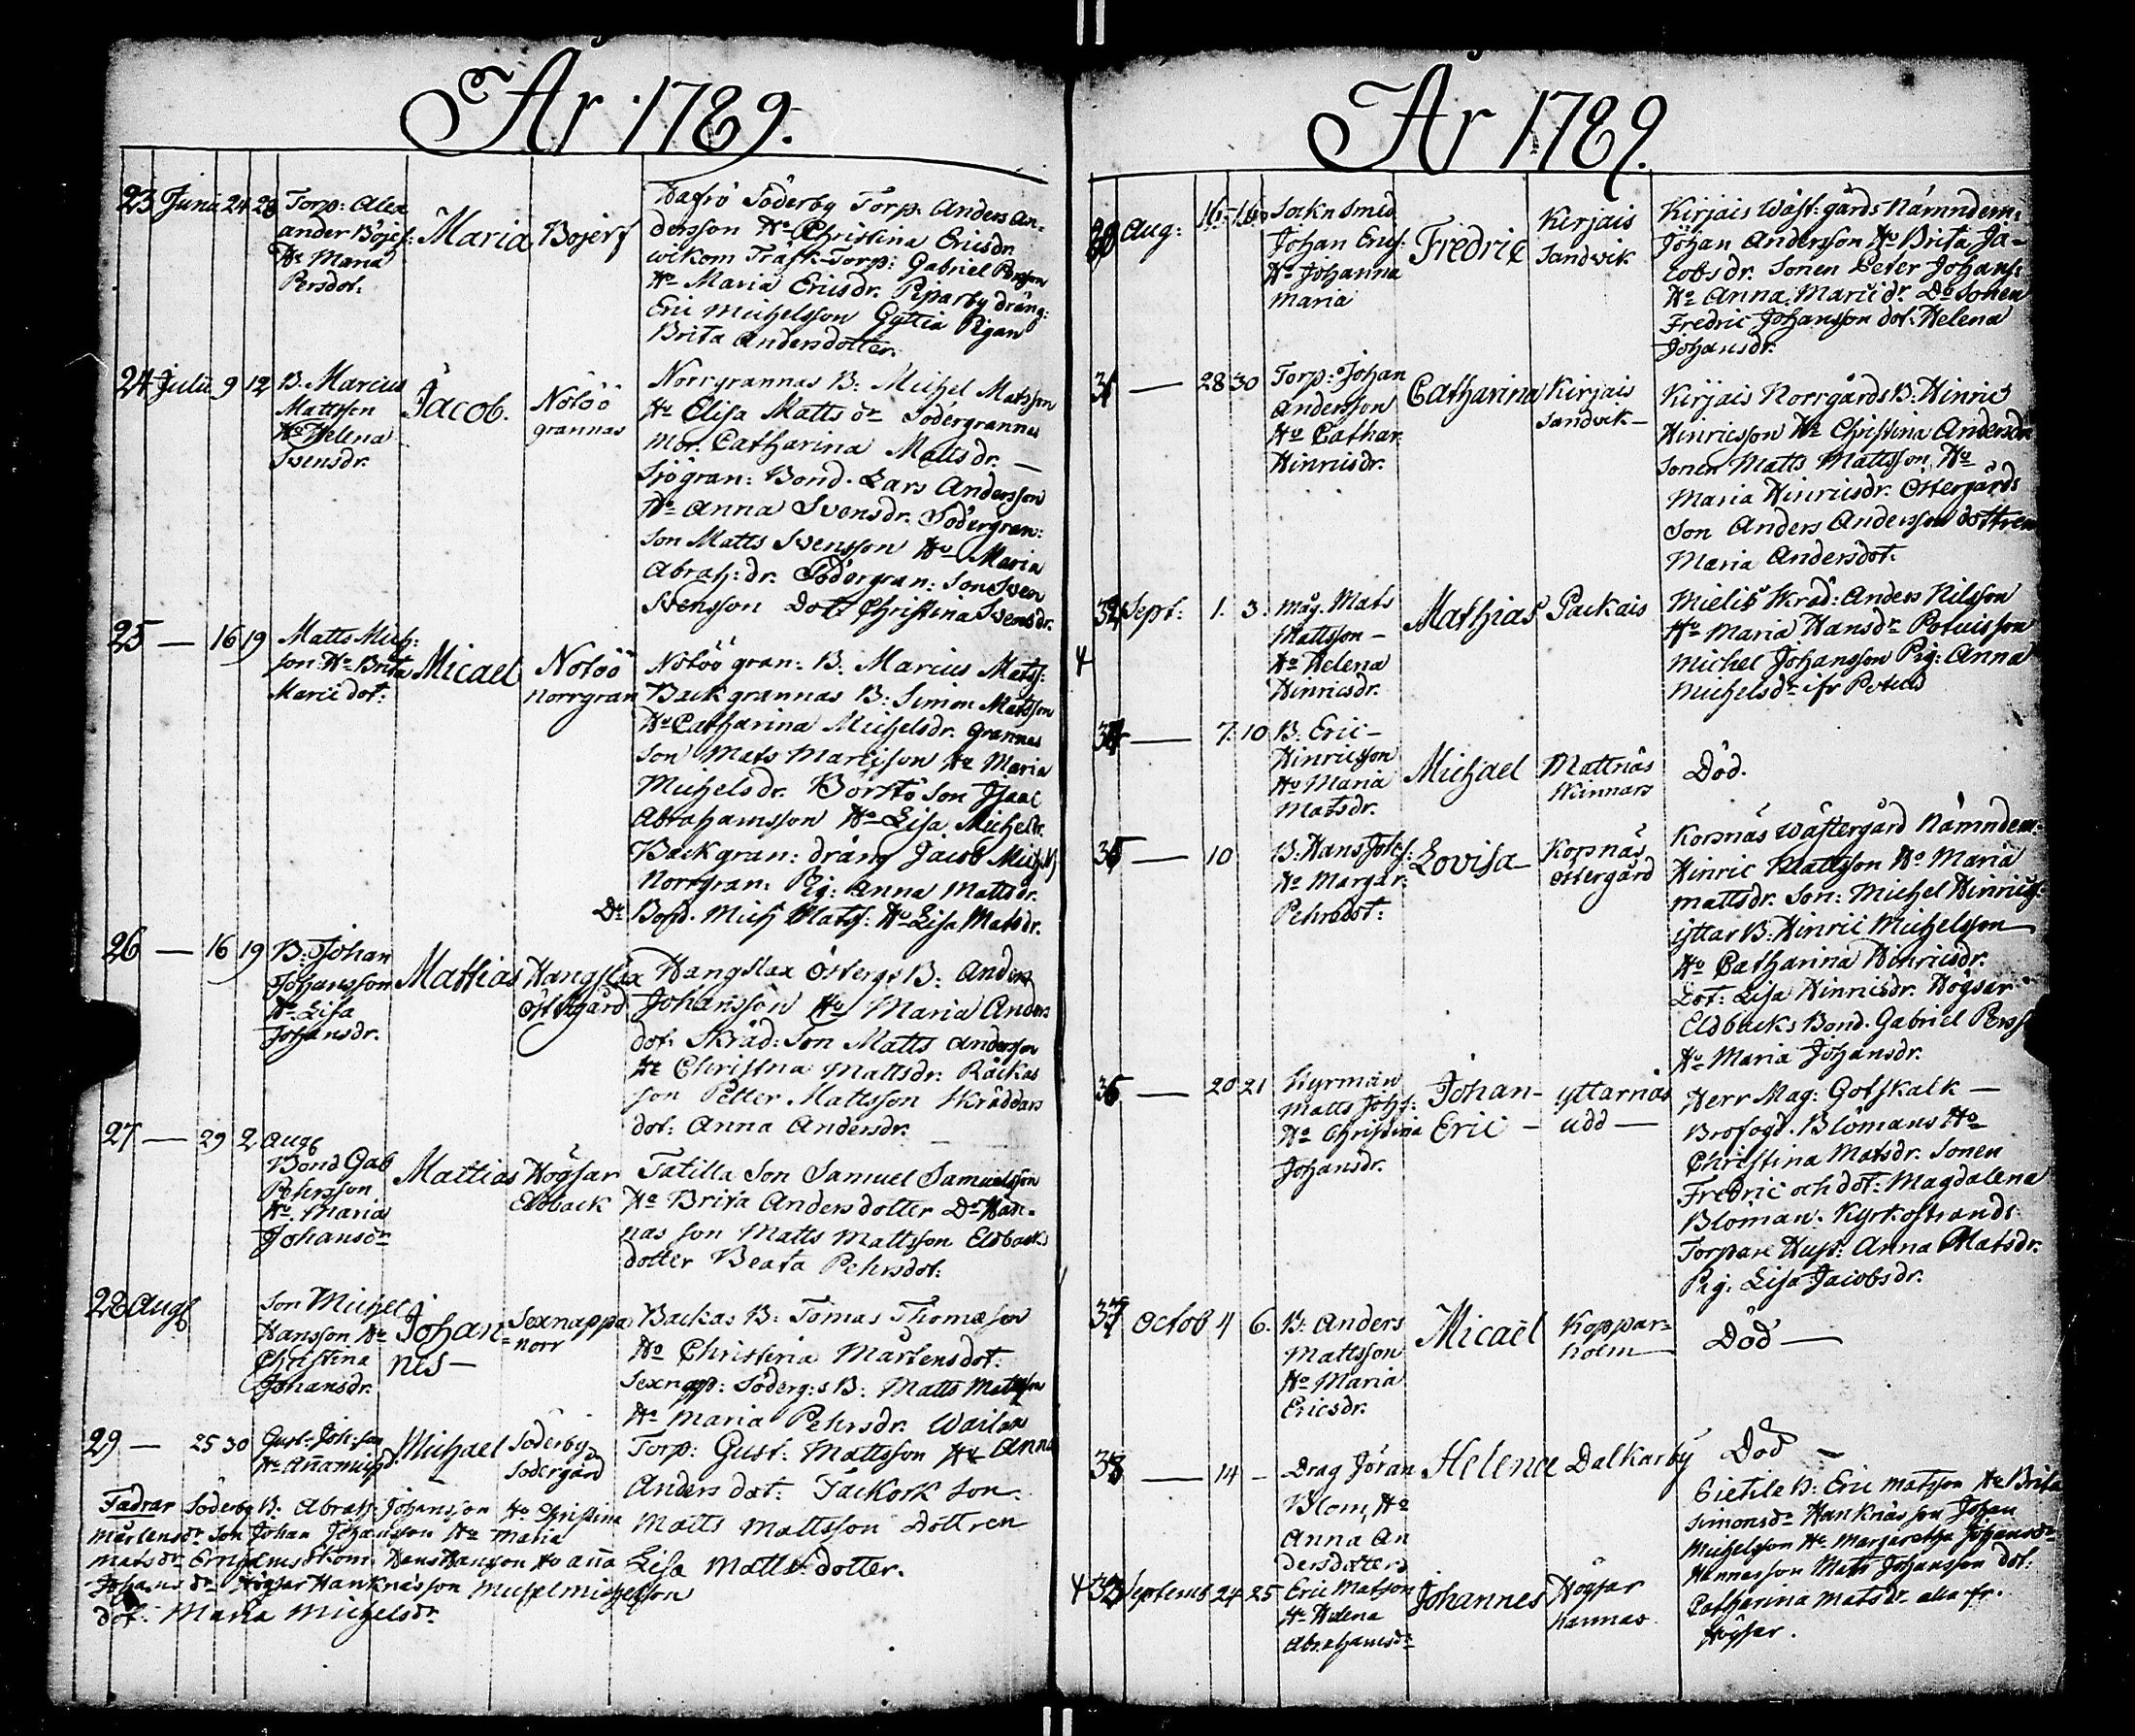 År 1789.
23 Junii 24 28 Torp: Alex
ander Böjers:
Hu Maria
Persdot:
Maria
Bojers
Nafrö Söderby Torp. Anders An-
dersson Hu Christina Ericsdr.
wikom Träsk-Torp: Gabriel Persson
Hu Maria Ericsdr. Piparby dräng:
Eric Michelsson Gyttia Pigan
Brita Andersdotter.
24 Julii 9 12 B. Marcus
Mattsson
Hu Helena
Svensdr.
Jacob.
Nötöö
grannas
Norrgrannas B: Michel Matsson
Hu Elisa Matts dr Södergrannas
Mor. Catharina Mattsdr. —
Sjögran: Bond. Lars Andersson
Hu Anna Svensdr. Södergran:
Son Matts Svensson Hu Maria
Abrah: dr. Södergran: Son Sven
Svensson Dot: Christina Svensdr.
25 — 16 19 Matts Mich:
son Hu Brita
Marci dot:
Micael
Nötöö
Norrgran
Nötöö gran: B. Marcus Mats:
Backgrannas B: Simon Matsson
Hu Catharina Michelsdr. Grannas
Son Mats Marcisson Hu Maria
Michelsdr. Börstö Son Isaac
Abrahamsson Hu Lisa Michelsdr.
Backgran: dräng Jacob Mich
Norrgran: Pig: Anna Mattsdr.
Do Bond. Mich Mats: Hu Lisa Matsdr.
26 — 16 19 B: Johan
Johansson
Hu Lisa
Johansdr.
Mathias
Hangslax
Östergård
Hangslax Österg: B: Anders
Johansson Hu Maria Anders
dot: Skräd: Son Matts Andersson
Hu Christina Mattsdr. Räckas
son Petter Mattsson Skräddars
dot: Anna Andersdr.
27 — 29 2 Aug
Bond Gab
Pehrsson
Hu. Maria
Johansdr
Mattias
Högsar
Eldback
Tatilla Son Samuel Samuelsson
Hu Brita Andersdotter Do Han-
nas son Matts Mattsson Eldbacks
dotter Beata Pehrsdot:
28 Aug
Son Michel
Hansson Hu
Christina
Johansdr.
Johan-
nes —
Sexnappa
Norr
Backas B: Tomas Thomæson
Hu Christina Mårtensdot:
Sexnapp: Söderg:s B: Matts Matsson
Hu Maria Pehrsdr. Wailax
29 — 25 30 Gust: Joh:son
Hu Anna Michsd.
Michael
Söderby
Södergård
Torp: Gust: Mattsson Hu Anna
Anders dot: Täckork Son
Matts Mattsson Dottren
Lisa Matts dotter.
Fadrar Söderby B. Abrah: Johansson Hu Christina
Mårtensdr Son Johan Johansson Hu Maria
Matsdr Hans Hansson Hu Anna
Johans dr Högsar Hanknäs son Michel Michelsson
dot: Maria Michelsdr
År 1789.
30 Aug: 16. 16. Sockn Smed
Johan Erics:
Hu Johanna
Maria
Fredric
Kirjais
Sandvik
Kirjais Wäst: gårds Nämndem:
Johan Andersson Hu Brita Ja-
cobsdr. Sonen Peter Johans:
Hu Anna Marci dr. Do Sonen
Fredric Johansson dot: Helena
Johansdr.
31 — 28 30 Torp: Johan
Andersson
Hu Cathar.
Hinricsdr.
Catharina
Kirjais
Sandvik —
Kirjais Norrgårds B: Hinric
Hinricsson Hu Christina Andersdr
Sonen Matts Mattsson Hu
Maria Hinricsdr. Östergårds
Son Anders Andersson dottren
Maria Andersdot:
32 Sept: 1. 3. Måg. Mats
Mattsson —
Hu Helena
Hinricsdr.
Mathias
Packais
Mielis Skräd: Anders Nilsson
Hu Maria Hansdr Potuis son
Michel Johansson Pig: Anna
Michelsdr ifr Potuis
34 — 7. 10 B: Eric —
Hinricsson
Hu Maria
Matsdr.
Michael
Mattnäs
Skinnars
Död.
35 — 10 B: Hans Johs:
Hu Margar.
Pehrsdot:
Lovisa —
Korsnäs
Östergård
Korsnäs Wästergård Nämndem:
Hinric Mattsson Hu Maria
Mattsdr. Son: Michel Hinrics
Yttar B. Hinric Michelsson
Hu Catharina Hinricsdr.
Dot: Lisa Hinricsdr. Högsar
Eldbacks Bond. Gabriel Perss
Hu Maria Johansdr.
36 — 20 21 Styrman
Matts Johs:
Hu Christina
Johansdr.
Johan —
Eric —
Yttarnäs
udd —
Herr Mag: Gotskalk —
Brofogd. Blömans Hu
Christina Matsdr. Sonen
Fredric och dot: Magdalena
Blöman. Kyrkostrands
Torpare Hust: Anna Matsdr.
Pig. Lisa Jacobsdr.
37 Octob 4 6. B: Anders
Mattsson
Hu Maria
Ericsdr.
Micaël
Koppar-
holm —
Död —
38 — 14 — Drag Jöran
Blom, Hu
Anna An
dersdotter
Helena
Dalkarby
Död —
33 Septemb 24 25 Eric Matsson
Hu Helena
Abrahamsdr
Johannes
Högsar
hannas
Gietile B: Eric Matsson Hu Brita
Simonsdr Hanknäs son Johan
Michelsson Hu Margaretha Johansdr
Hannas son Mats Johansson dot:
Catharina Matsdr alla fr.
Högsar.